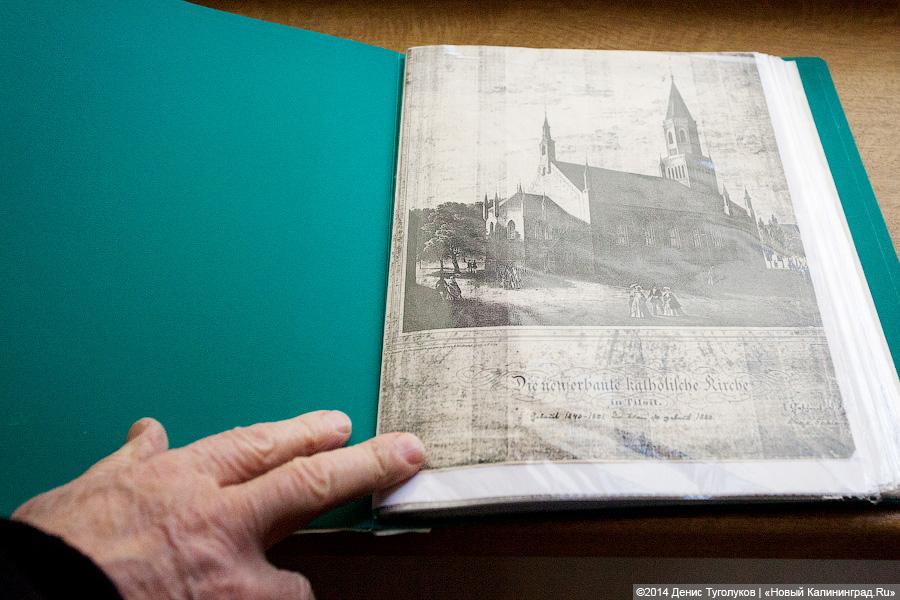 Die neuerbaute katholische Kirche
in Tilsit.
Gebaut 1840-1851
©2014 Денис Туголуков | «Новый Калининград.Ru»